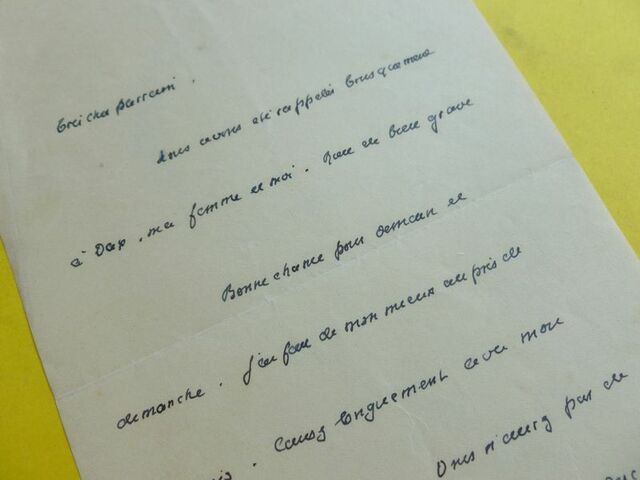 avons été rappelés brusquement
à Dax, ma femme et moi. Rien de bien grave
Bonne chance pour demain et
dimanche. J'ai fait de mon mieux auprès de
Causez longuement avec mon
Vous n'aurez pas de